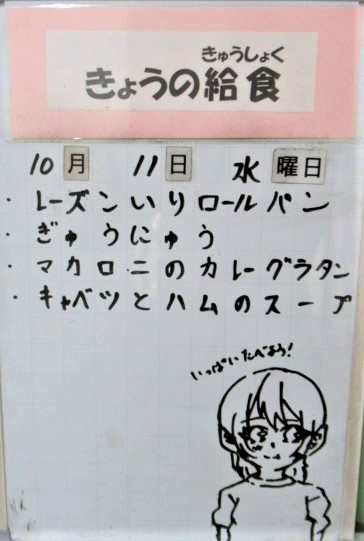 きゅうしょく
きょうの給食
10月 11日 水曜日
・レーズンいりロールパン
・ぎゅうにゅう
・マカロニのカレーグラタン
・キャベツとハムのスープ
いっぱいたべよう!